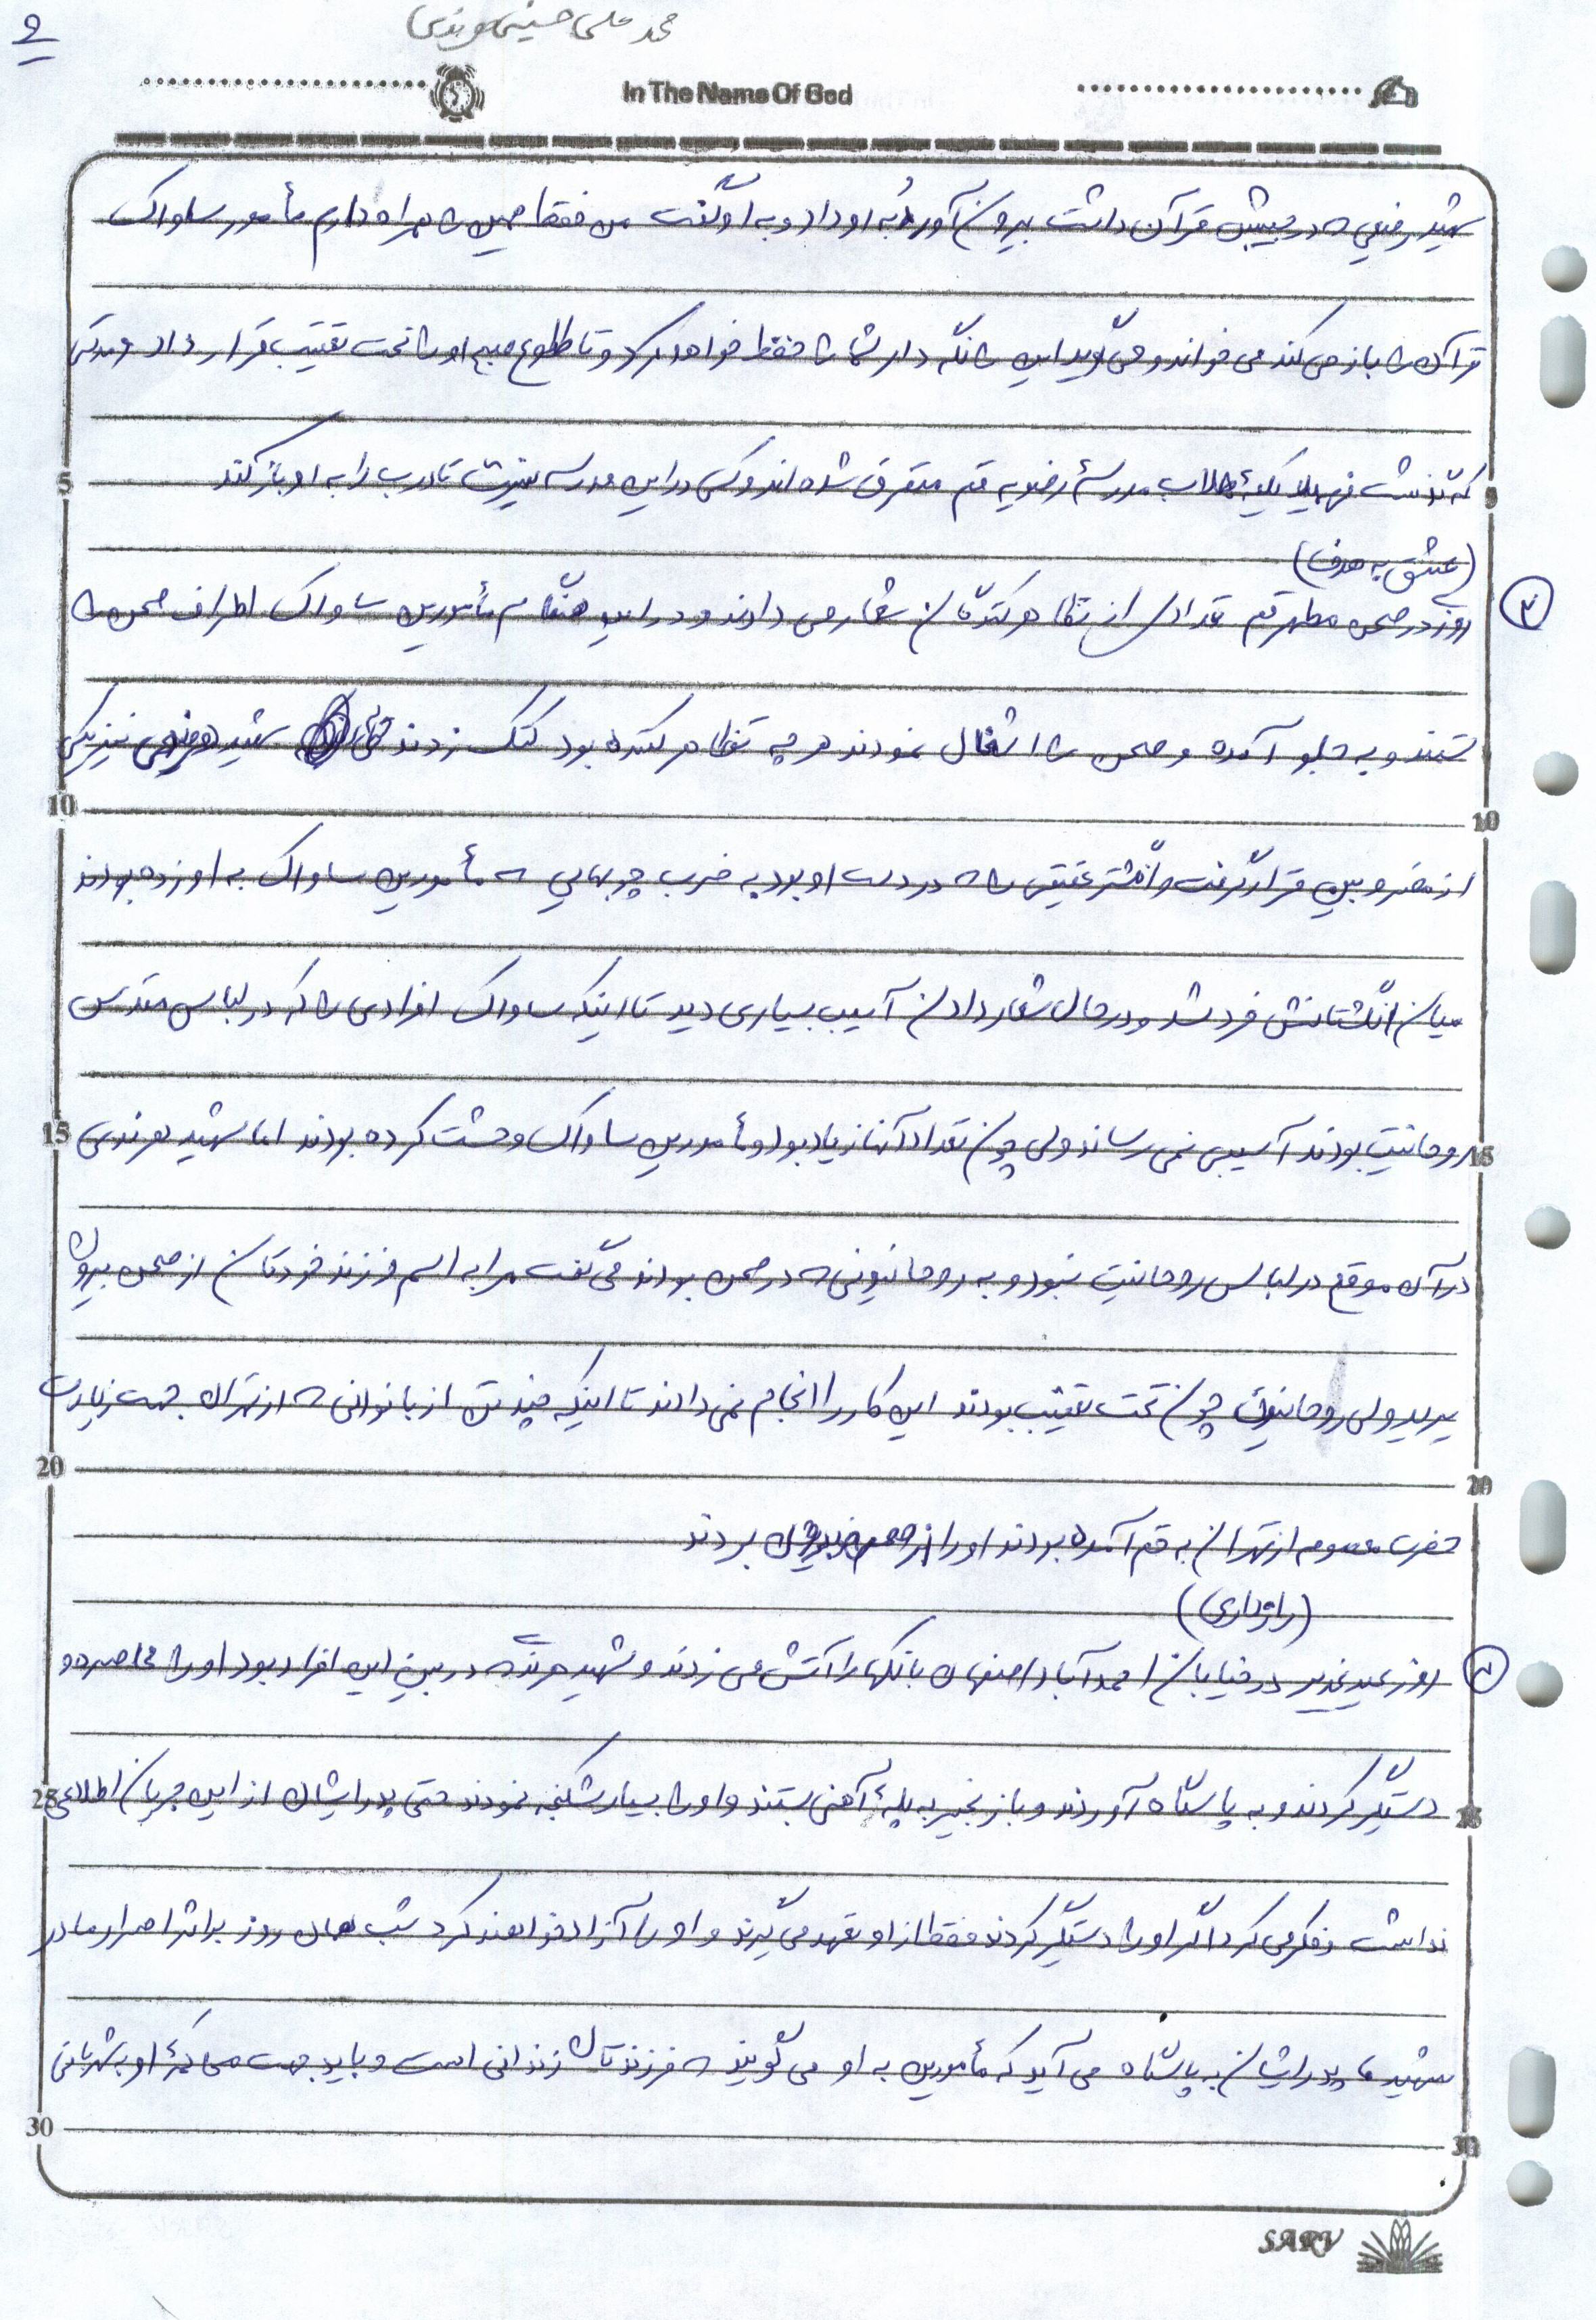 محمد علی حسینی هرندی
۹
In The Name Of God
شهید رفیعی که در جیبش قرآن داشت بیرون آورد به او داد و به او گفت من فقط همین را همراه دارم مأمور ساواک
قرآن را باز می کند می خواند و می گوید این را نگه دار شما را حفظ خواهد کرد و تا طلوع صبح او را تحت تعقیب قرار داد و مدتی
که گذشت فهمید کلیهٔ طلاب مدرسهٔ رضویه قم متفرق شده اند و کسی در این مدرسه نیست تا درب را به او باز کند
(عشق به هدف)
۳ روز در صحن مطهر قم تعدادی از تظاهر کنندگان شعار می دادند و در این هنگام مأمورین ساواک اطراف صحن را
بستند و به جلو آمده و صحن را اشغال نمودند هر چه تظاهر کننده بود کتک زدند شهید هرندی نیز یکی
از مضروبین قرار گرفت و انگشتر عقیقی را که در دست او بود به ضرب چوبهایی که مأمورین ساواک به او زده بودند
میان انگشتانش خرد شد و در حال شعار دادن آسیب بسیاری دید تا اینکه ساواک افرادی را که در لباس مقدس
روحانیت بودند آسیبی نمی رساند ولی چون تعداد آنها زیاد بود و مأمورین ساواک وحشت کرده بودند اما شهید هرندی
در آن موقع در لباس روحانیت نبود و به روحانیونی که در صحن بودند می گفت مرا به اسم فرزند خودتان از صحن بیرون
ببرید ولی روحانیون چون تحت تعقیب بودند این کار را انجام نمی دادند تا اینکه چند تن از بانوانی که از تهران جهت زیارت
حضرت معصومه از تهران به قم آمده بودند او را از صحن بیرون بردند
(رازداری)
۴ روز عید غدیر در خیابان احمدآباد اصفهان بانکها را آتش می زدند و شهید هرندی که در بین این افراد بود او را محاصره و
دستگیر کردند و به پاسگاه آوردند و با زنجیر به پلهٔ آهنی بستند و او را بسیار شکنجه نمودند حتی پدر ایشان از این جریان اطلاعی
نداشت و فکر می کرد اگر او را دستگیر کردند فقط از او تعهد می گیرند و او را آزاد خواهند کرد شب همان روز بر اثر اصرار مادر
شهید ما پدر ایشان به پاسگاه می آید که مأمورین به او می گویند که فرزندتان زندانی است و باید جهت محاکمهٔ او به شهربانی
5
5
10
10
15
15
20
20
25
25
30
30
SARV